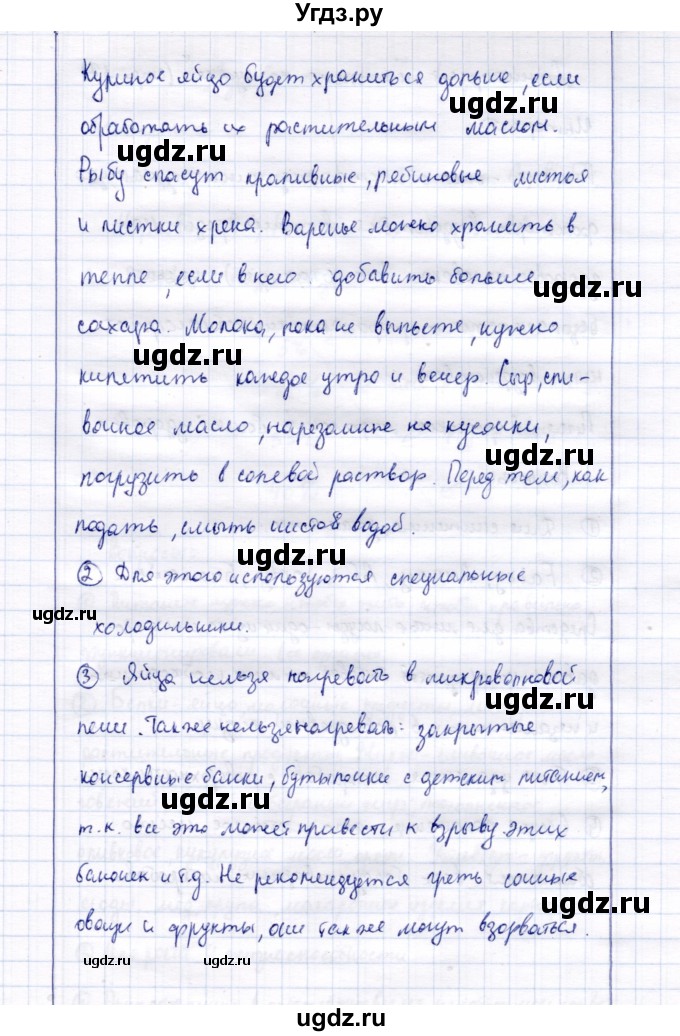 Угдз.ру
Куриное яйцо будет храниться дольше, если
ugdz.ru
обработать их растительным маслом.
ugdz.ru
Рыбу спасут крапивные, рябиновые листья
и листки хрена. Варенье можно хранить в
тепле, если в него добавить больше
ugdz.ru
сахара. Молока, пока не выпьете, нужно
ugdz.ru
кипятить каждое утро и вечер. Сыр, сли-
вочное масло, нарезанные на кусочки,
ugdz.ru
погрузить в солевой раствор. Перед тем, как
подать, смыть чистой водой.
ugdz.ru
② Для этого используются специальные
ugdz.ru
холодильники.
③ Яйца нельзя нагревать в микроволновой
ugdz.ru
печи. Также нельзя нагревать: закрытые
консервные банки, бутылочки с детским питанием,
ugdz.ru
т.к. все это может привести к взрыву этих
баночек и т.д. Не рекомендуется греть сочные
ugdz.ru
овощи и фрукты, они также могут взорваться.
ugdz.ru ugdz.ru
ugdz.ru ugdz.ru